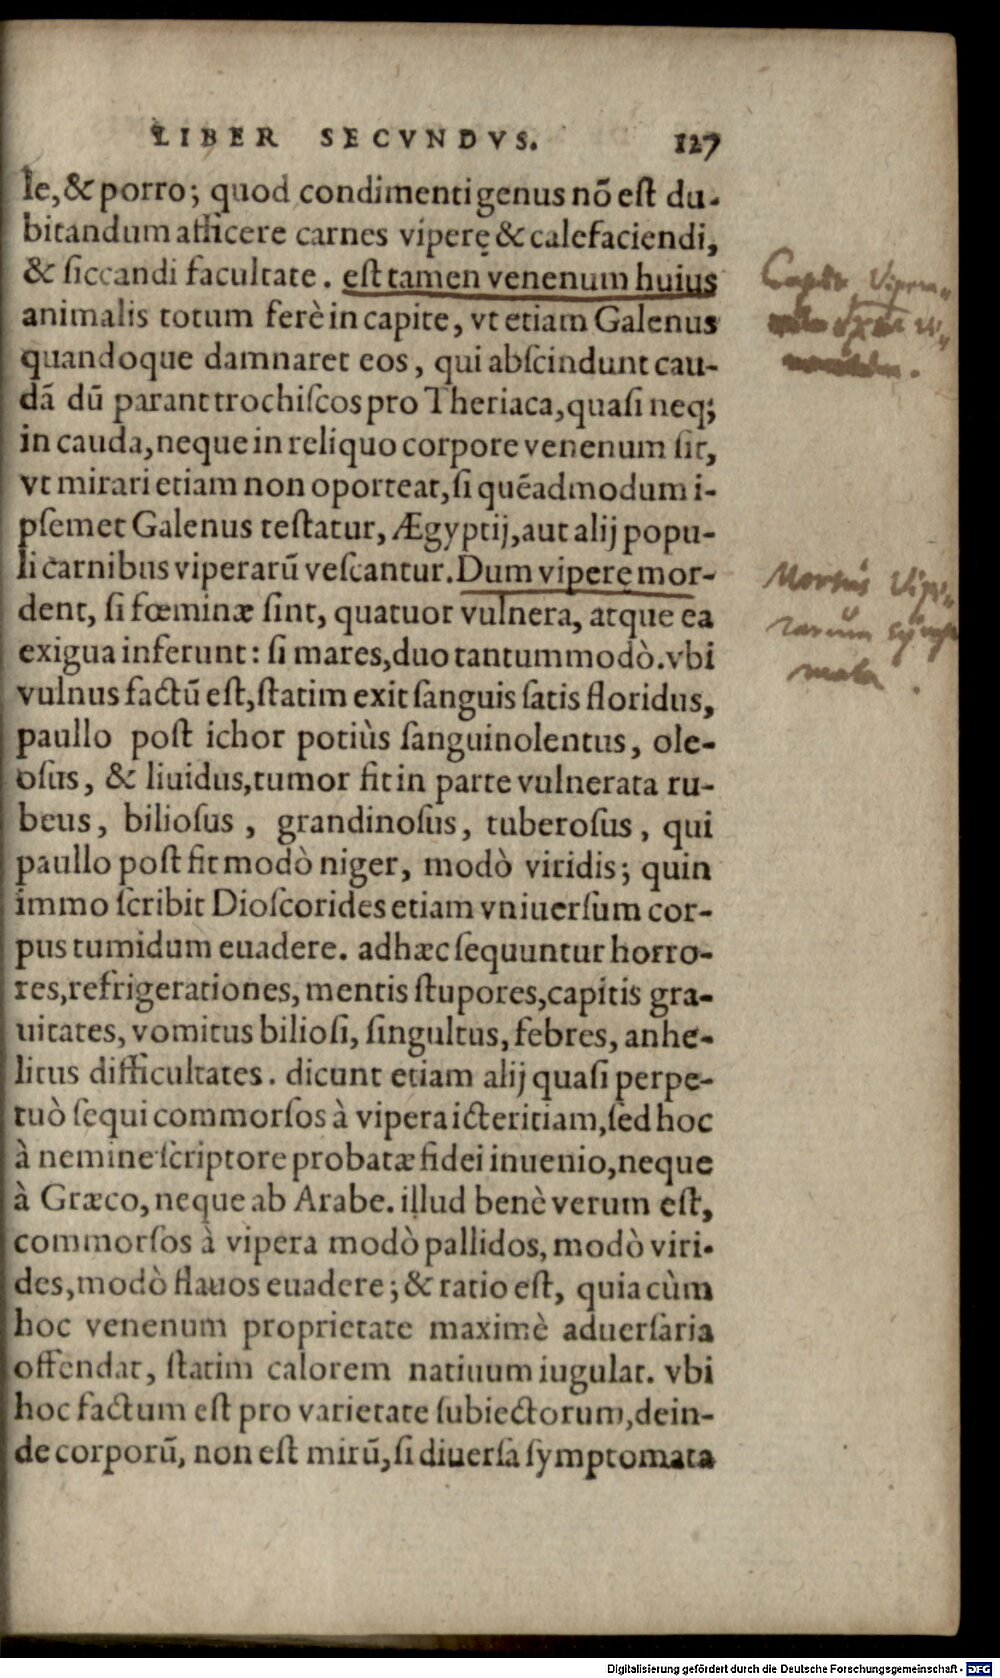 LIBER SECVNDVS. 127
le, & porro; quod condimenti genus nõ est du-
bitandum afficere carnes viperę & calefaciendi,
& siccandi facultate. est tamen venenum huius
animalis totum ferè in capite, vt etiam Galenus
quandoque damnaret eos, qui abscindunt cau-
dã dũ parant trochiscos pro Theriaca, quasi neq;
in cauda, neque in reliquo corpore venenum sit,
vt mirari etiam non oporteat, si quẽadmodum i-
psemet Galenus testatur, Ægyptij, aut alij popu-
li carnibus viperarũ vescantur. Dum viperę mor-
dent, si fœminæ sint, quatuor vulnera, atque ea
exigua inferunt: si mares, duo tantummodò. vbi
vulnus factũ est, statim exit sanguis satis floridus,
paullo post ichor potiùs sanguinolentus, ole-
osus, & liuidus, tumor fit in parte vulnerata ru-
beus, biliosus, grandinosus, tuberosus, qui
paullo post fit modò niger, modò viridis; quin
immo scribit Dioscorides etiam vniuersum cor-
pus tumidum euadere. adhæc sequuntur horro-
res, refrigerationes, mentis stupores, capitis gra-
uitates, vomitus biliosi, singultus, febres, anhe-
litus difficultates. dicunt etiam alij quasi perpe-
tuò sequi commorsos à vipera icteritiam, sed hoc
à nemine scriptore probatæ fidei inuenio, neque
à Græco, neque ab Arabe. illud benè verum est,
commorsos à vipera modò pallidos, modò viri-
des, modò flauos euadere; & ratio est, quia cùm
hoc venenum proprietate maximè aduersaria
offendat, statim calorem natiuum iugulat. vbi
hoc factum est pro varietate subiectorum, dein-
de corporũ, non est mirũ, si diuersa symptomata
Morsus Vipe-
rarum
Digitalisierung gefördert durch die Deutsche Forschungsgemeinschaft - DFG